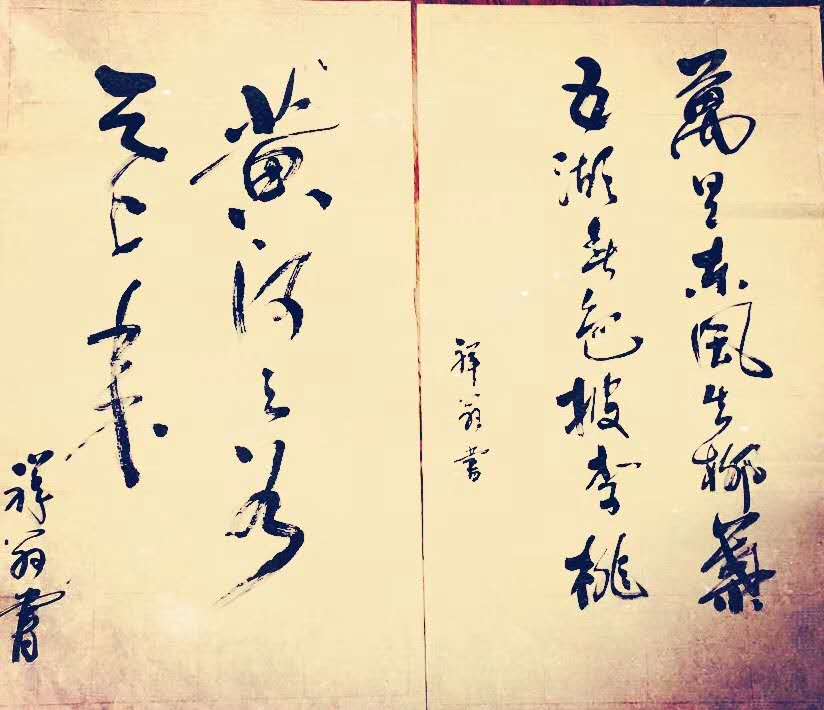 萬里東風生柳
五湖春色披李桃
祥翁書
黃河之水
天上來
祥翁書